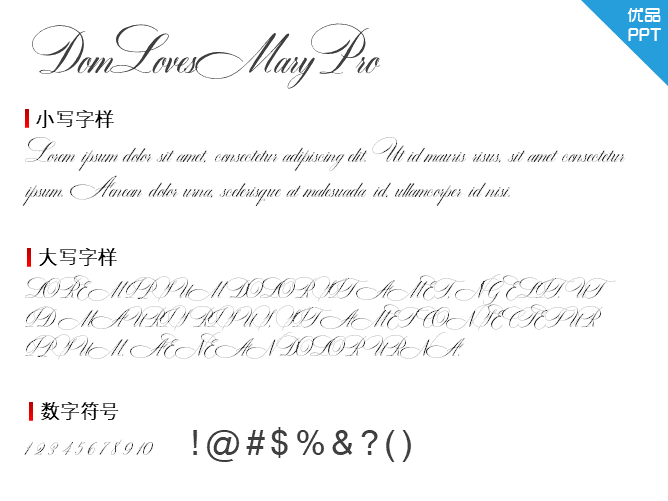 优品
PPT
DomLovesMary Pro
小写字样
Lorem ipsum dolor sit amet, consectetur adipiscing elit. Ut id mauris risus, sit amet consectetur
ipsum. Aenean dolor urna, scelerisque at malesuada id, ullamcorper id nisi.
大写字样
LOREM IPSUM DOLOR SIT AMET, NG ELIT. UT
ID MAURIS RISUS, SIT AMET CONSECTETUR
IPSUM. AENEAN DOLOR URNA,
数字符号
1 2 3 4 5 6 7 8 9 10 !@#$%&?()